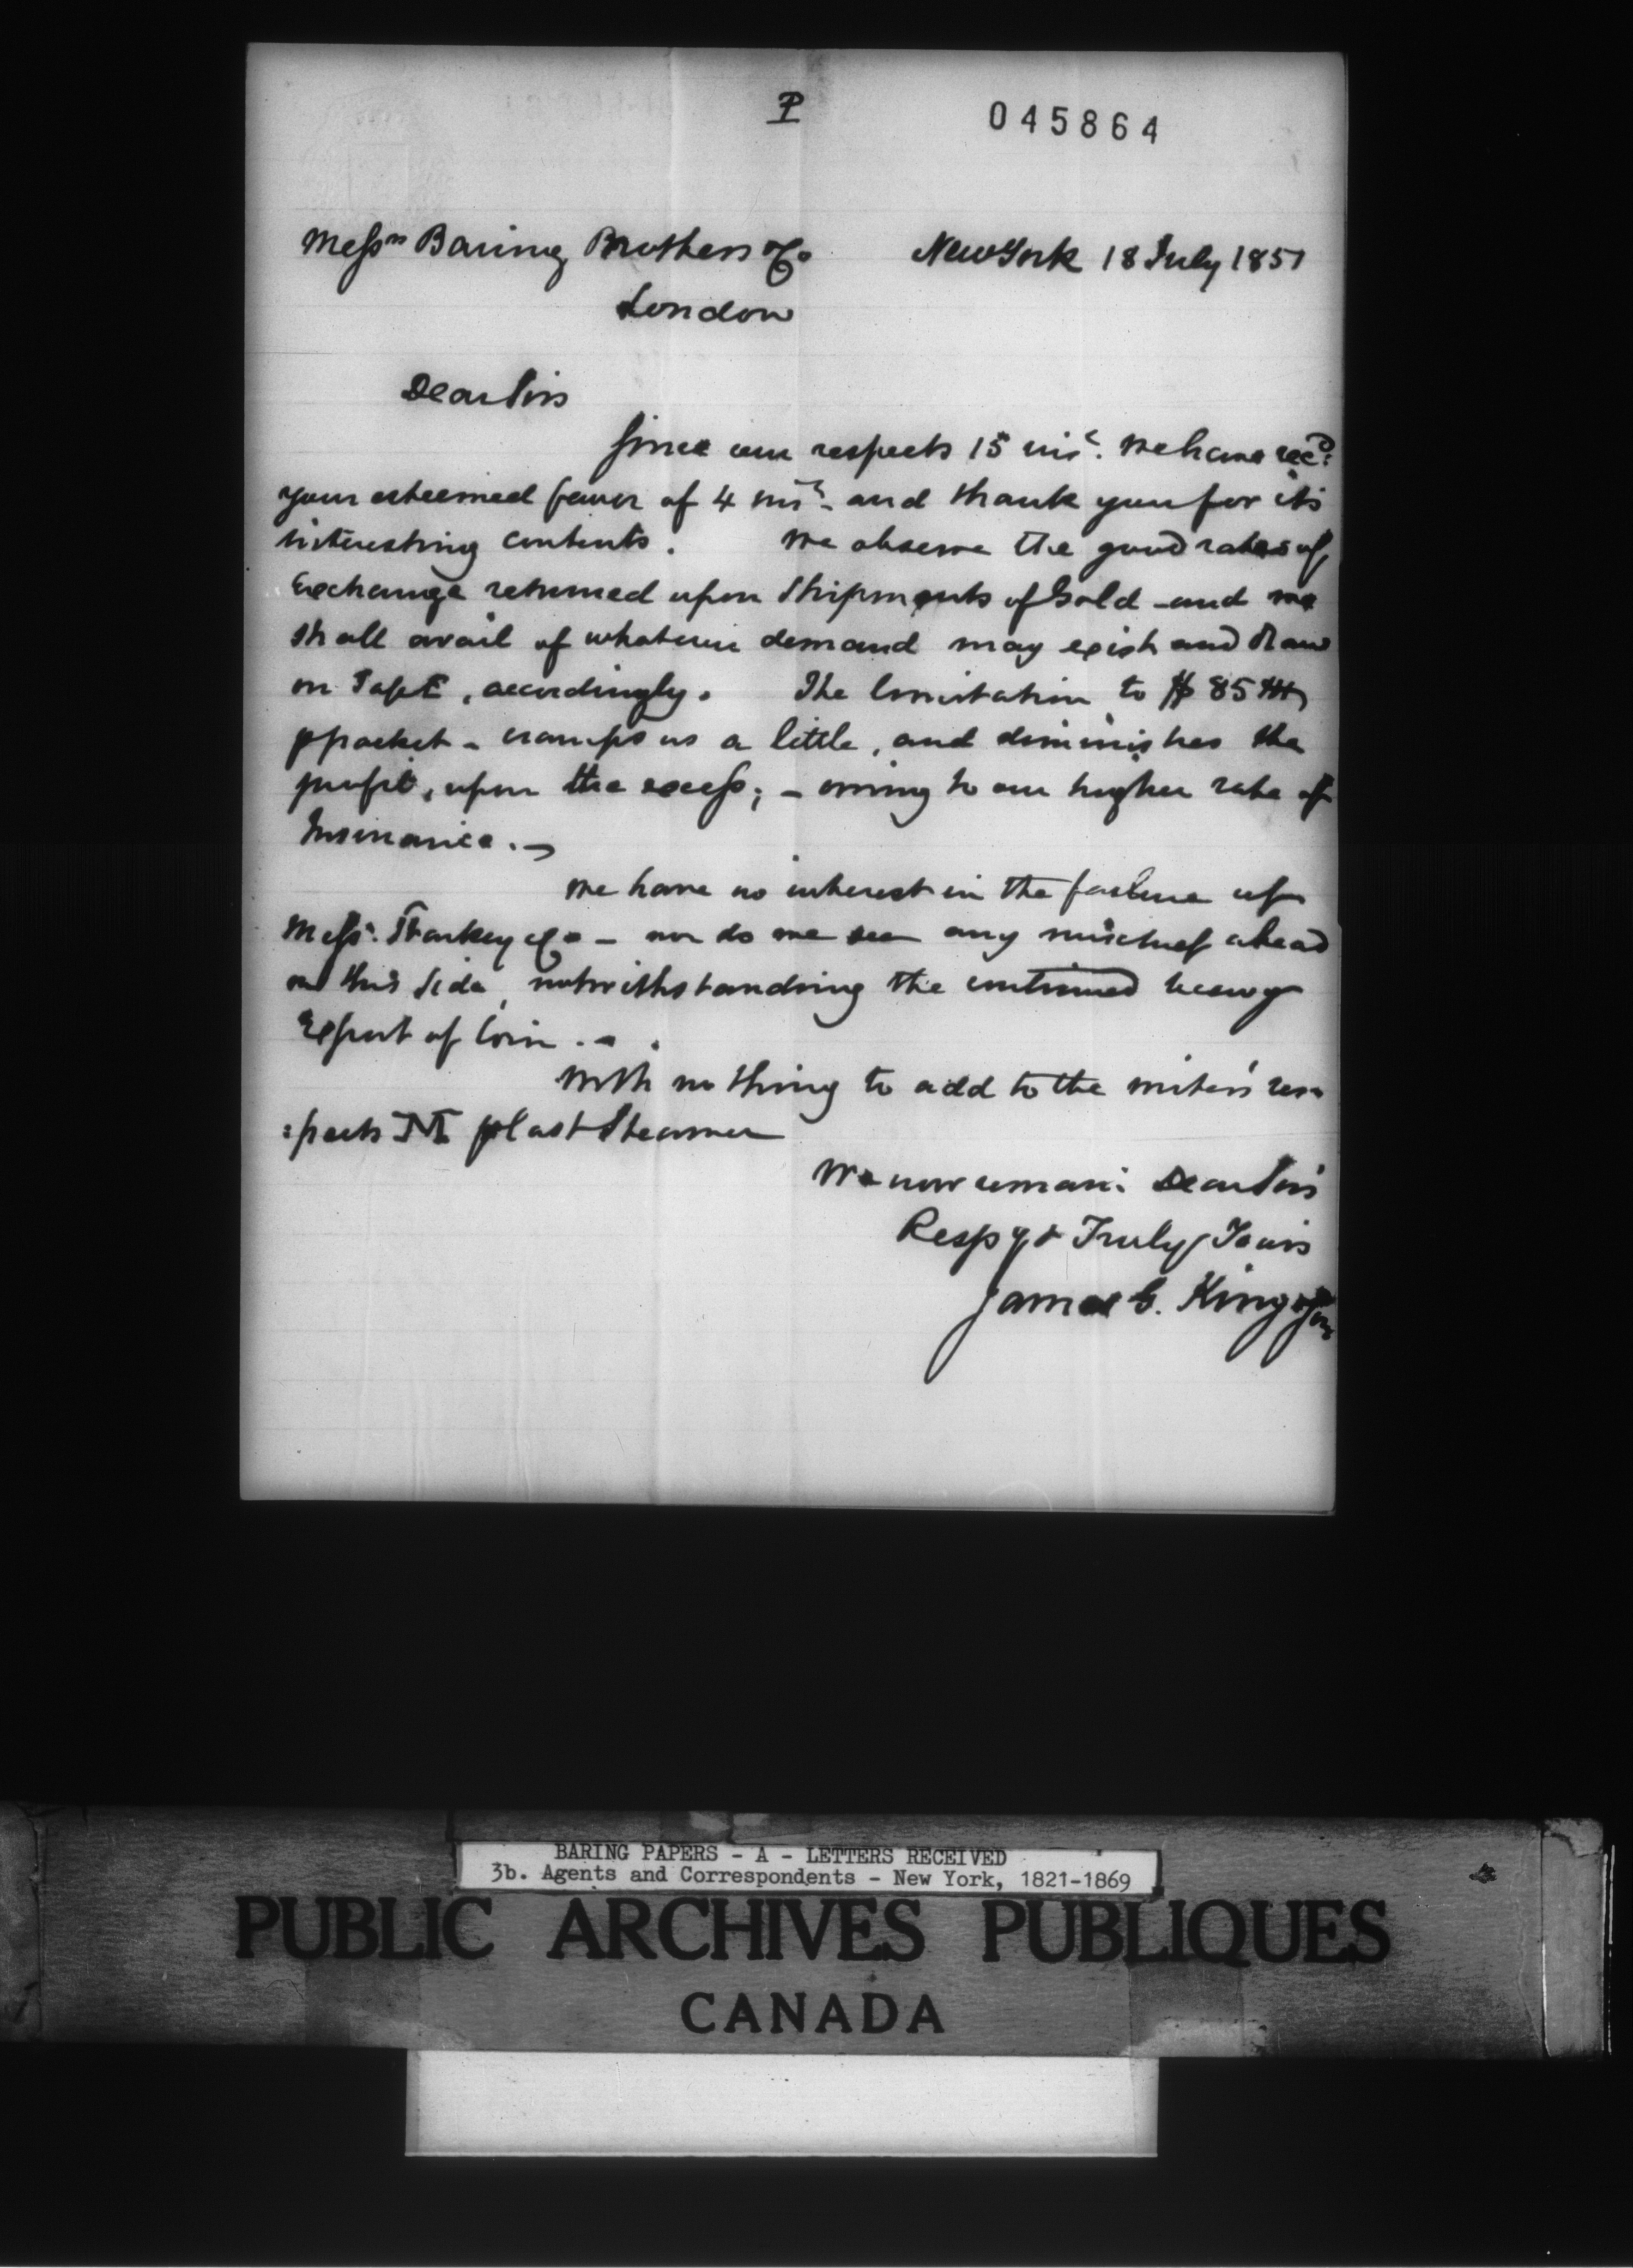 P
045864
Messrs Baring Brothers & Co
New York 18 July 1851
London
Dear Sirs
Since our respects 15 inst. we have recd:
your esteemed favor of 4 inst - and thank you for its
interesting contents. We observe the good rates of
Exchange returned upon Shipments of Gold - and we
shall avail of whatever demand may exist and draw
on, accordingly. The limitation to $85
p packet - cramps us a little, and diminishes the
profit, upon the excess; - owing to our higher rate of
Insurance. -
We have no interest in the failure of
Messrs. & Co - nor do we see any mischief ahead
on this side, notwithstanding the continued heavy
Export of Coin. - .
With nothing to add to the writer's res-
:pects p last Steamer
We now remain Dear Sirs
Respy & Truly Yours
James G. King & Sons
BARING PAPERS - A - LETTERS RECEIVED
3b. Agents and Correspondents - New York, 1821-1869
PUBLIC ARCHIVES PUBLIQUES
CANADA